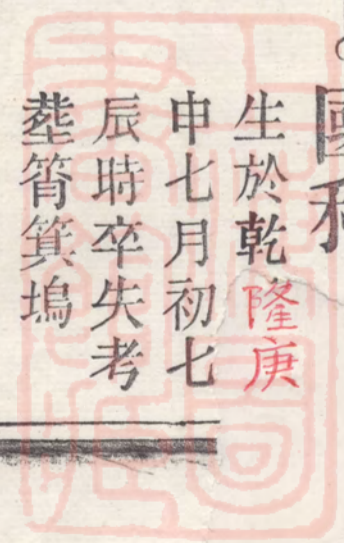 國
生於乾隆庚
申七月初七
辰時卒失考
塟筲箕塢